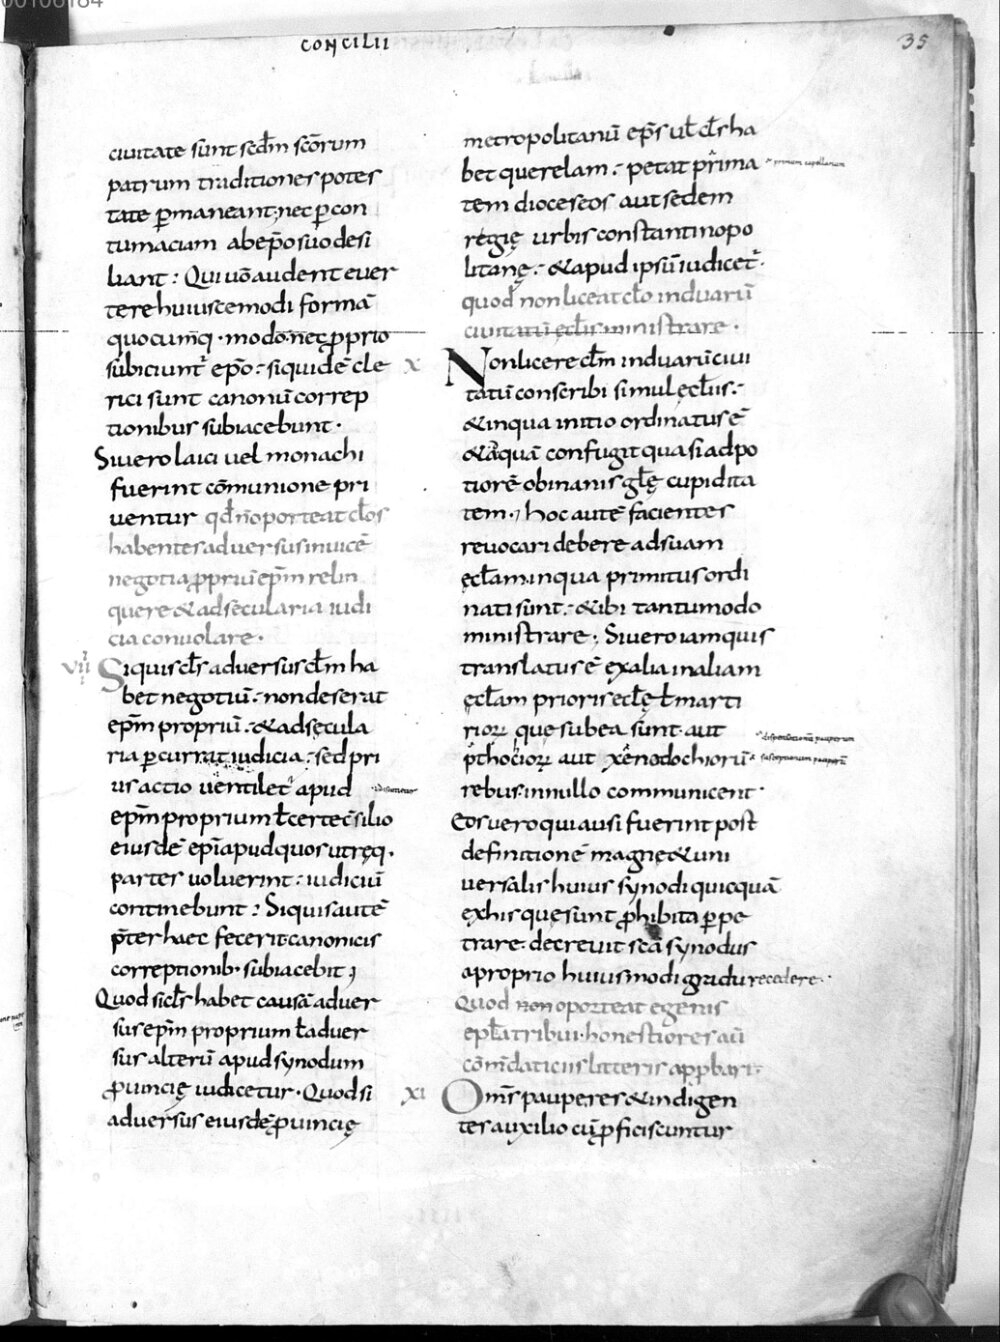 CONCILII
35
ciuitate sunt sedm̄ scōrum
patrum traditiones potes
tate p̄maneant; nec p̄ con
tumaciam ab ep̄o suo desi
liant : Qui uō audent euer
tere huiuscemodi formā
quocumq; modo. nec proprio
subiciunt̄ ep̄o : siquidē cle
rici sunt canonū correp
tionibus subiacebunt .
Siuero laici uel monachi
fuerint cōmunione pri
uentur qđ ñ oporteat clōs
habentes aduersus inuicē
negotia propriū ep̄m relin
quere & ad secularia iudi
cia conuolare .
VIIII Siquis cl̄s aduersus cl̄m ha
bet negotiū : non deserat
ep̄m propriū : & ad secula
ria p̄currat iudicia : sed pri
us actio uentilet̄ apud
ep̄m proprium ł certe cōsilio
eiusdē ep̄i apud quos utręq;
partes uoluerint : iudiciū
continebunt : Siquis autē
p̄ter haec fecerit canonicis
correptionib; subiacebit ;
Quod si cl̄s habet causā aduer
sus ep̄m proprium ł aduer
sus alterū apud synodum
prouincię iudicetur . Quod si
aduersus eiusdē prouincię
metropolitanū ep̄s uł cl̄s ha
bet querelam : petat prima
tem dioceseos aut sedem
regię urbis constantinopo
litanę : & apud ipsū iudicet̄ .
quod non liceat clō in duarū
ciuitatū ecl̄is ministrare .
X Non licere cl̄m in duarū ciui
tatū conscribi simul ęcl̄iis :
& in qua initio ordinatus ē
& ad quā confugit quasi ad po
tiorē ob inanis gl̄ę cupidita
tem ; hoc autē facientes
reuocari debere ad suam
ęcl̄am in qua primitus ordi
nati sunt : & ibi tantumodo
ministrare ; Siuero iam quis
translatus ē ex alia in aliam
ęcl̄am prioris ecl̄ę ł marti
rioꝝ que sub ea sunt aut
pthochioꝝ aut xenodochiorū
rebus in nullo communicent .
Eos uero qui ausi fuerint post
definitionē magnę & uni
uersalis huius synodi quicquā
ex his que sunt prohibita p̄pe
trare. decreuit scā synodus
a proprio huiusmodi gradu recedere .
Quod non oporteat egenis
epl̄a tribui. honestiores aū
cōmdaticiis litteris app̄bari .
XI Om̄s pauperes & indigen
tes auxilio cū p̄ficiscuntur